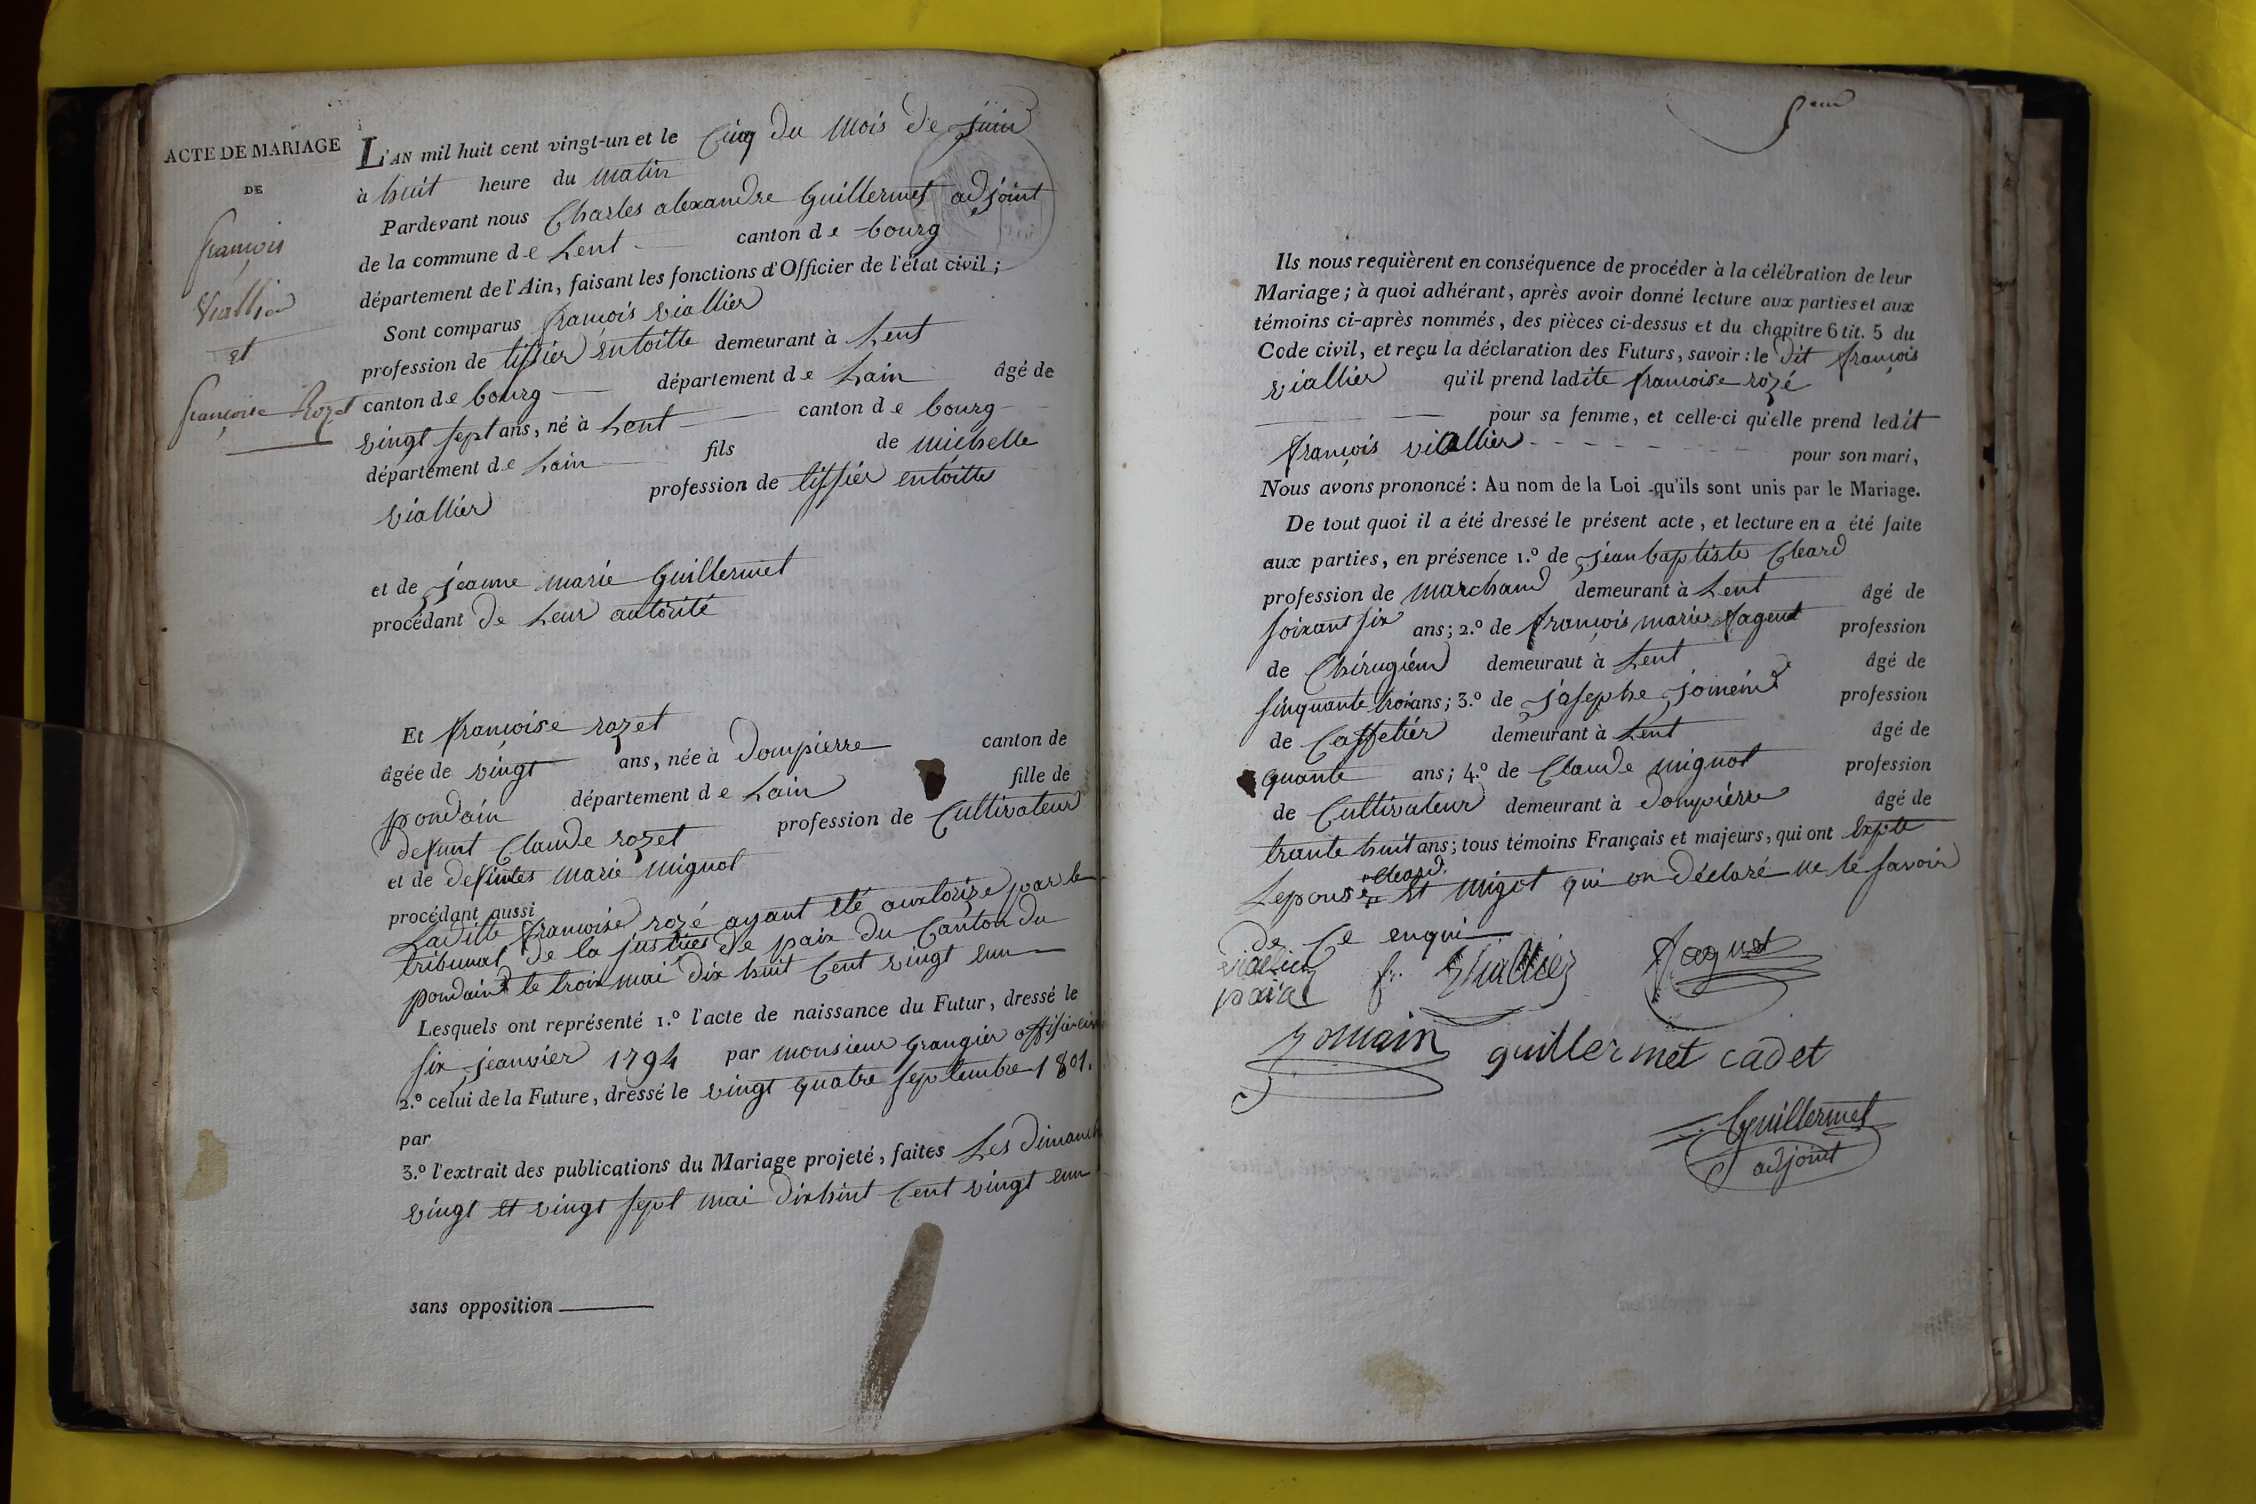 ACTE DE MARIAGE
DE
françois
Viallier
et
françoise Rozet
L'AN mil huit cent vingt-un et le Cinq du Mois de juin
à huit heure du matin
Pardevant nous Charles alexandre Guillermet adjoint
de la commune de Lent canton de bourg
département de l'Ain, faisant les fonctions d'Officier de l'état civil;
Sont comparus françois viallier
profession de tissier entoille demeurant à Lent
canton de bourg département de Lain âgé de
vingt sept ans, né à Lent canton de bourg
département de Lain fils de michelle
viallier profession de tissier entoille
et de jeanne marie Guillermet
procédant de Leur autorité
Et françoise rozet
âgée de vingt ans, née à dompierre canton de
pondain département de Lain fille de
defunt Claude rozet profession de Cultivateur
et de defuntes marie mignot
procédant aussi
Laditte françoise rozé ayant été autorize par le
tribunal de la justice de paix du Canton du
pondaint le trois mai dix huit Cent vingt eun
Lesquels ont représenté 1.º l'acte de naissance du Futur, dressé le
six jeanvier 1794 par monsieur Grangier
2.º celui de la Future, dressé le vingt quatre septembre 1801.
par
3.º l'extrait des publications du Mariage projeté, faites Les dimanch
vingt et vingt sept mai dixhuit Cent vingt eun
sans opposition
Ils nous requièrent en conséquence de procéder à la célébration de leur
Mariage; à quoi adhérant, après avoir donné lecture aux parties et aux
témoins ci-après nommés, des pièces ci-dessus et du chapitre 6 tit. 5 du
Code civil, et reçu la déclaration des Futurs, savoir: le dit françois
viallier qu'il prend ladite françoise rozé
pour sa femme, et celle-ci qu'elle prend ledit
françois viallier pour son mari,
Nous avons prononcé: Au nom de la Loi qu'ils sont unis par le Mariage.
De tout quoi il a été dressé le présent acte, et lecture en a été faite
aux parties, en présence 1.º de jean baptiste Cleard
profession de marchand demeurant à Lent âgé de
soixant six ans; 2.º de françois marie profession
de Chirugien demeurant à Lent âgé de
sinquante trois ans; 3.º de josephe profession
de Caffetier demeurant à Lent âgé de
quante ans; 4.º de Claude mignot profession
de Cultivateur demeurant à dompierre âgé de
trante huit ans; tous témoins Français et majeurs, qui ont
Lepouse Cleard et migot qui on déclaré ne le savoir
de Ce enqui
fr. Vialliez
guillermet cadet
Guillermet
adjoint